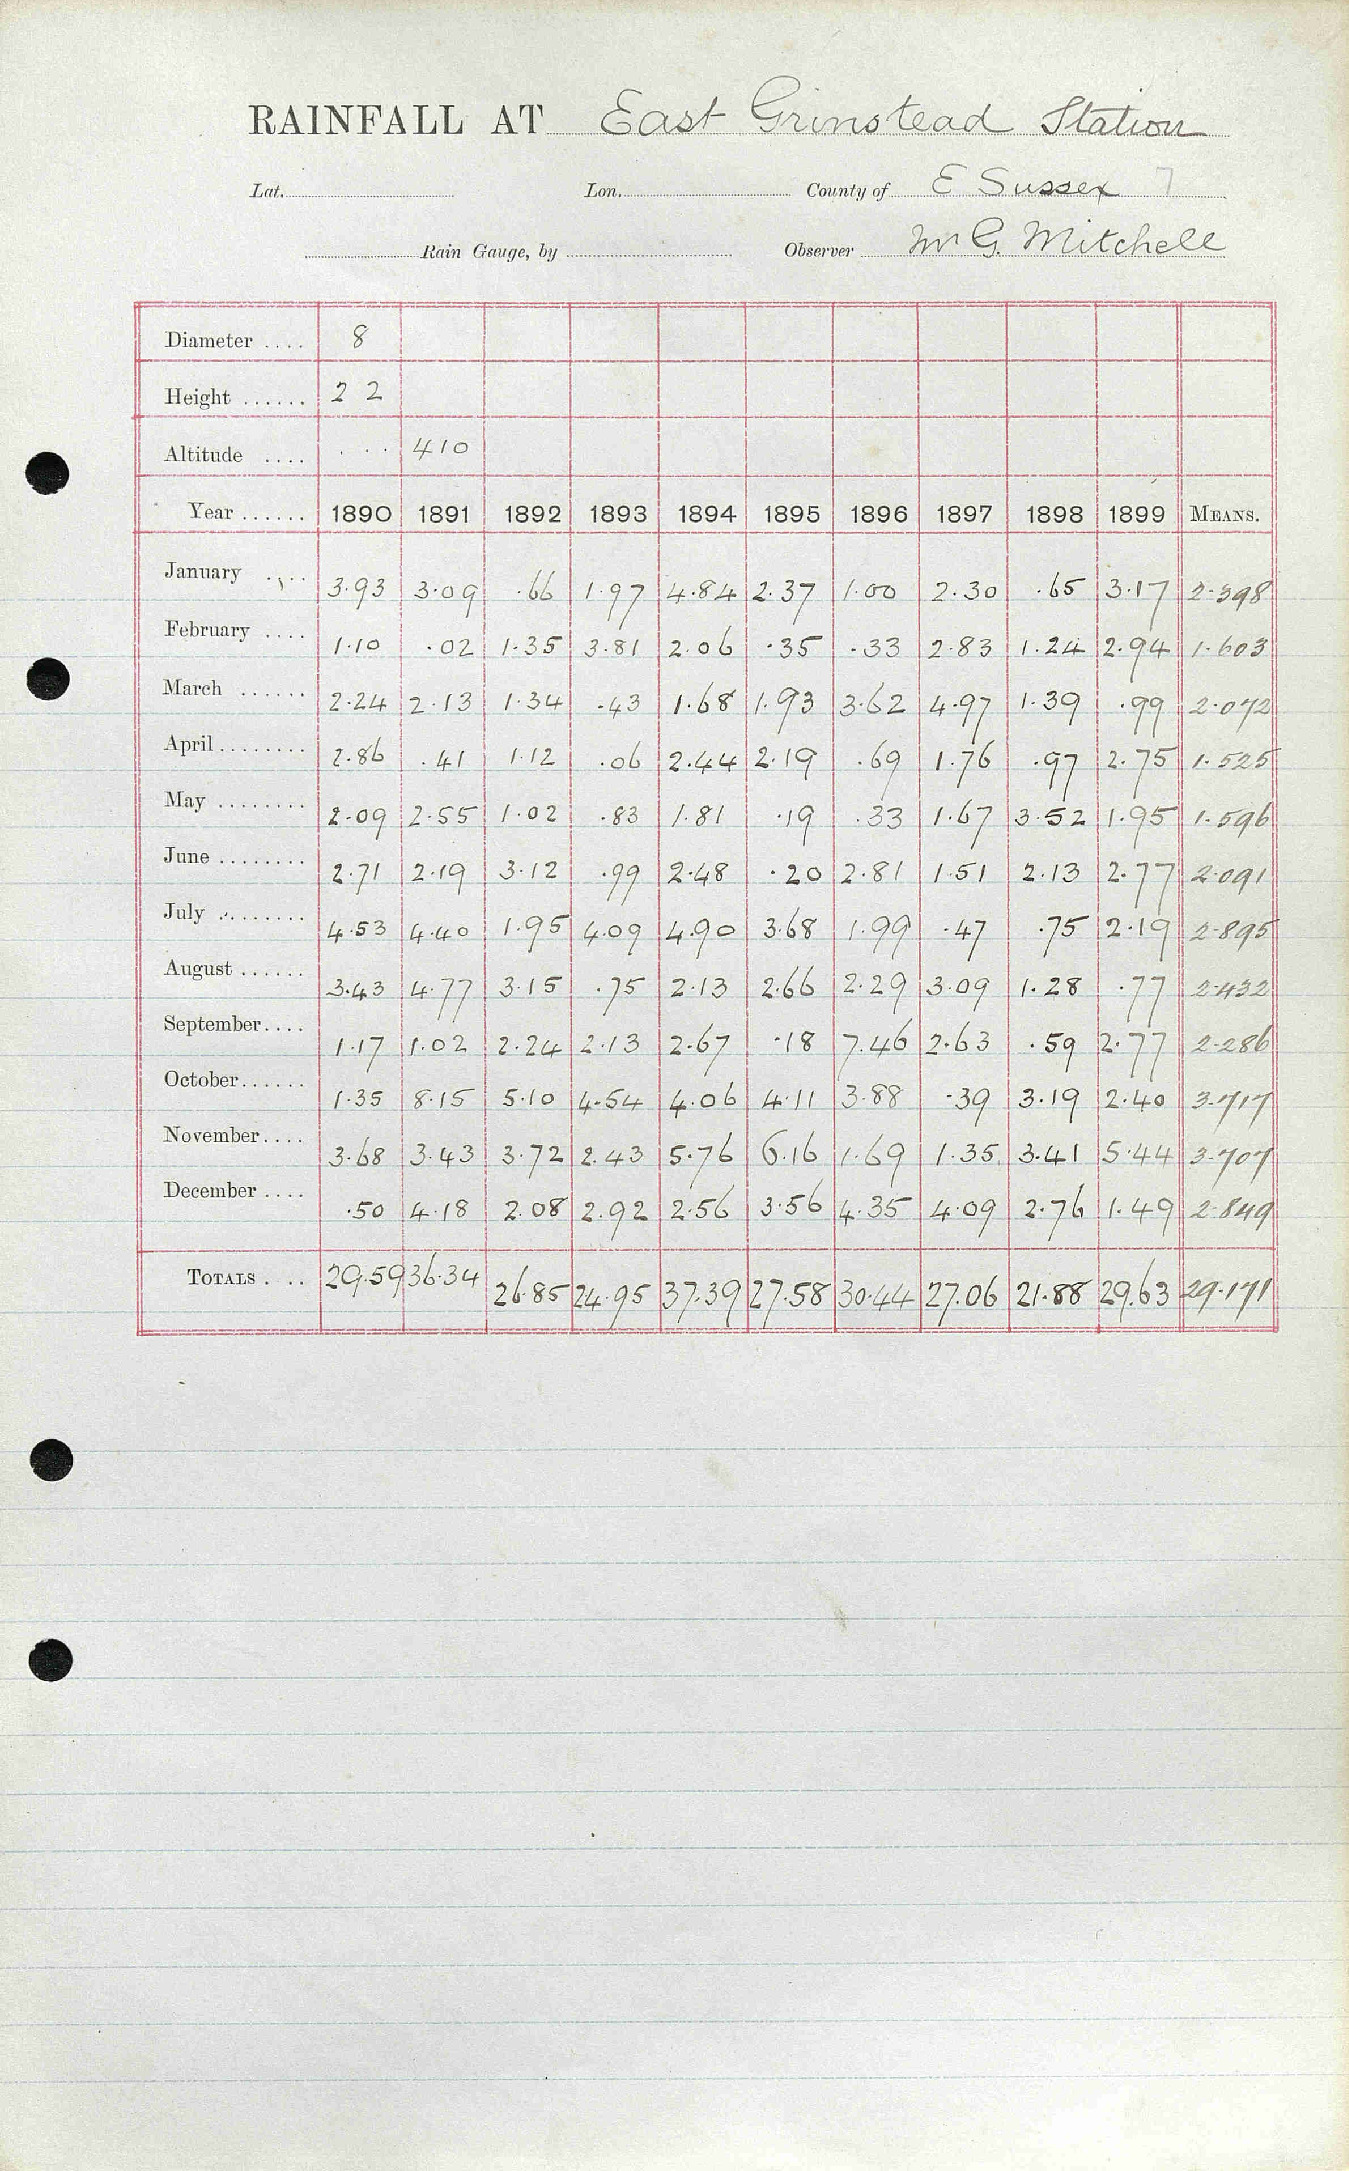 RAINFALL AT East Grinstead Station
Lat. Lon. County of E Sussex 7
Rain Gauge, by Observer Mr G. Mitchell
Diameter .... 8
Height ...... 2 2
Altitude .... . . . 410
Year ...... 1890 1891 1892 1893 1894 1895 1896 1897 1898 1899 MEANS.
January .... 3.93 3.09 .66 1.97 4.84 2.37 1.00 2.30 .65 3.17 2.398
February .... 1.10 .02 1.35 3.81 2.06 .35 .33 2.83 1.24 2.94 1.603
March ...... 2.24 2.13 1.34 .43 1.68 1.93 3.62 4.97 1.39 .99 2.072
April ........ 2.86 .41 1.12 .06 2.44 2.19 .69 1.76 .97 2.75 1.525
May ........ 2.09 2.55 1.02 .83 1.81 .19 .33 1.67 3.52 1.95 1.596
June ........ 2.71 2.19 3.12 .99 2.48 .20 2.81 1.51 2.13 2.77 2.091
July ........ 4.53 4.40 1.95 4.09 4.90 3.68 1.99 .47 .75 2.19 2.895
August ...... 3.43 4.77 3.15 .75 2.13 2.66 2.29 3.09 1.28 .77 2.432
September.... 1.17 1.02 2.24 2.13 2.67 .18 7.46 2.63 .59 2.77 2.286
October...... 1.35 8.15 5.10 4.54 4.06 4.11 3.88 .39 3.19 2.40 3.717
November.... 3.68 3.43 3.72 2.43 5.76 6.16 1.69 1.35 3.41 5.44 3.707
December .... .50 4.18 2.08 2.92 2.56 3.56 4.35 4.09 2.76 1.49 2.849
TOTALS . .. 29.59 36.34 26.85 24.95 37.39 27.58 30.44 27.06 21.88 29.63 29.171